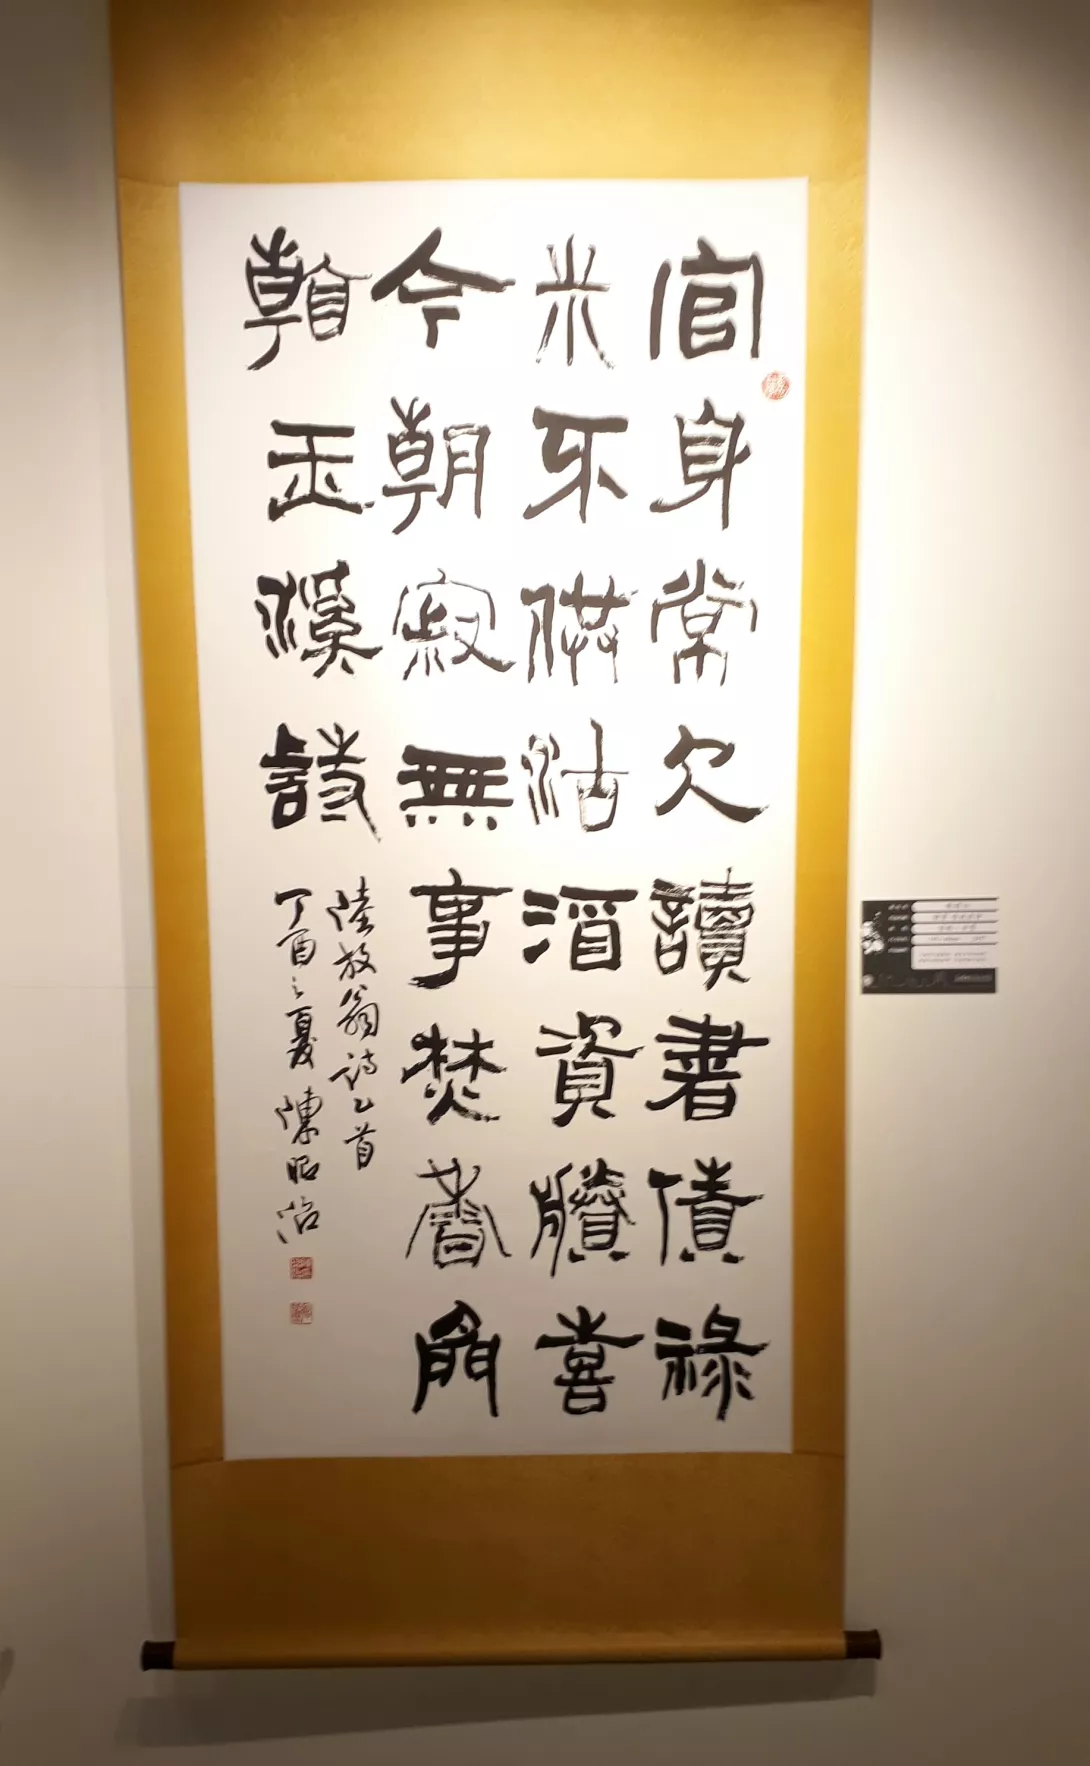 官身常欠讀書債祿
米不供沽酒資賸喜
今朝寂無事焚香閒
看玉溪詩
陸放翁詩乙首
丁酉之夏陳昭